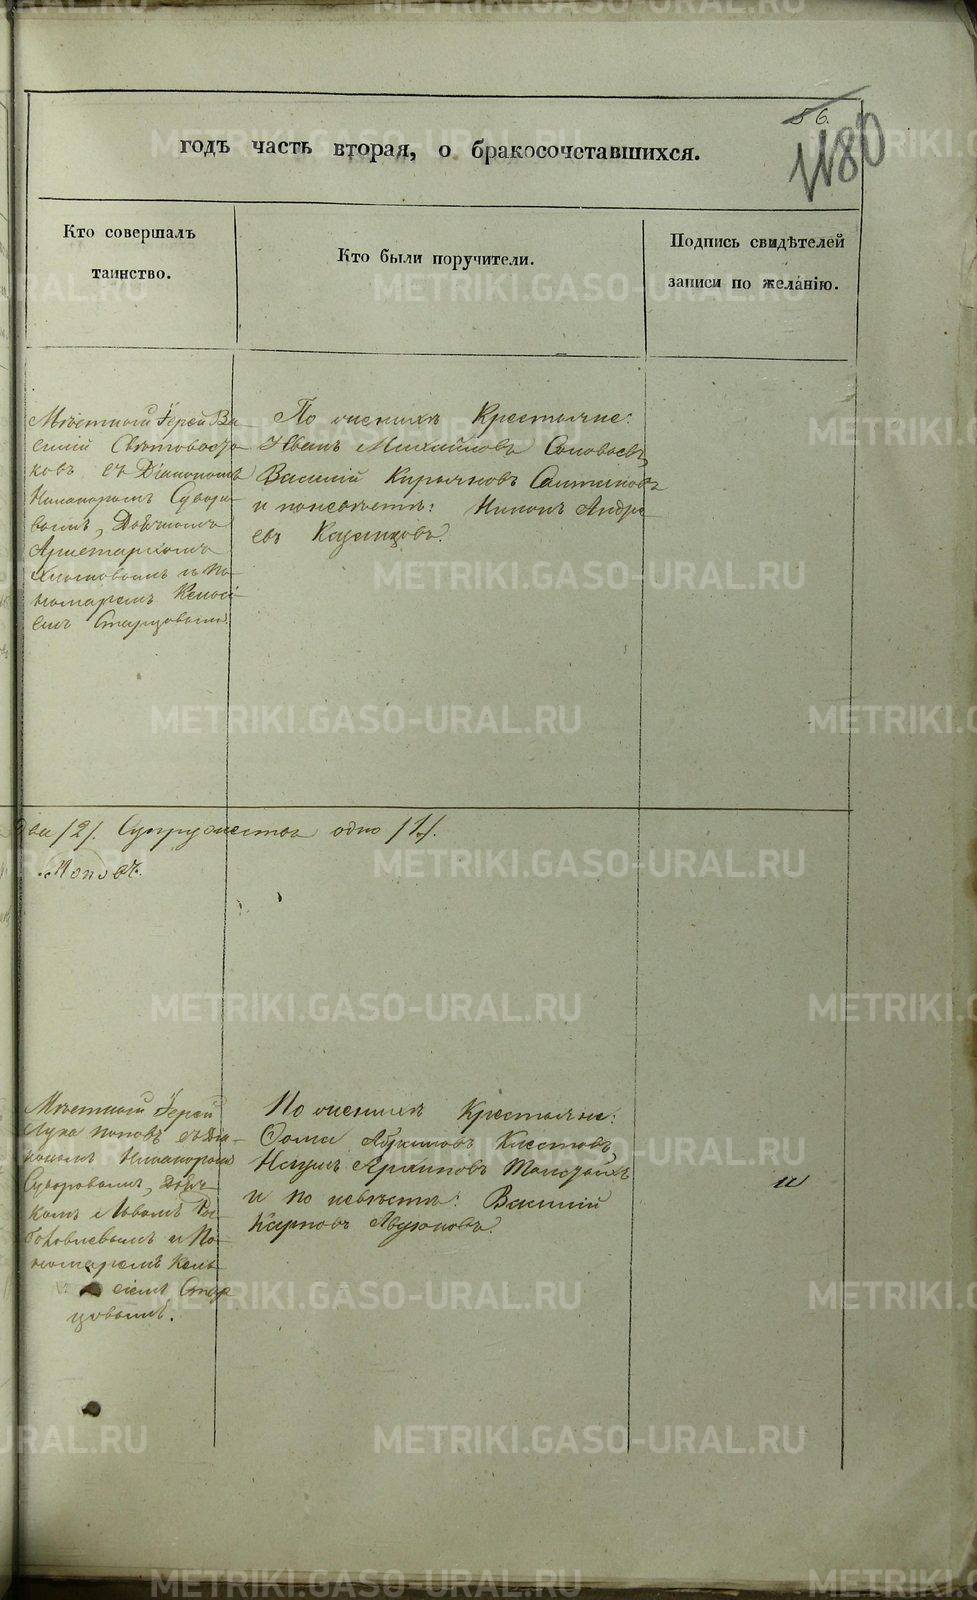 56.
1180
годъ часть вторая, о бракосочетавшихся.
Кто совершалъ
таинство.
Кто были поручители.
Подпись свидѣтелей
записи по желанію.
Мѣстный Іерей Ва
силій Свѣтовосто
ковъ съ Діакономъ
Никаноромъ Суворо
вымъ, Дьячкомъ
Аристархомъ
и По
номаремъ
Старцовымъ.
По женихѣ Крестьяне:
Иванъ Михайловъ Соловьевъ,
Василій Кирьяновъ Салтановъ
и по невѣстѣ: Никонъ Андре
евъ Казанцовъ.
два /2/. Супружества одно /1/.
Поповъ.
Мѣстный Іерей
Лука Поповъ съ Діа-
кономъ Никаноромъ
Суворовымъ, Дьяч-
комъ
и По-
номаремъ
Стар
цовымъ.
По женихѣ Крестьяне:
Фома Абрамовъ
Наумъ Архиповъ
и по невѣстѣ: Василій
Карповъ
METRIKI.GASO-URAL.RU